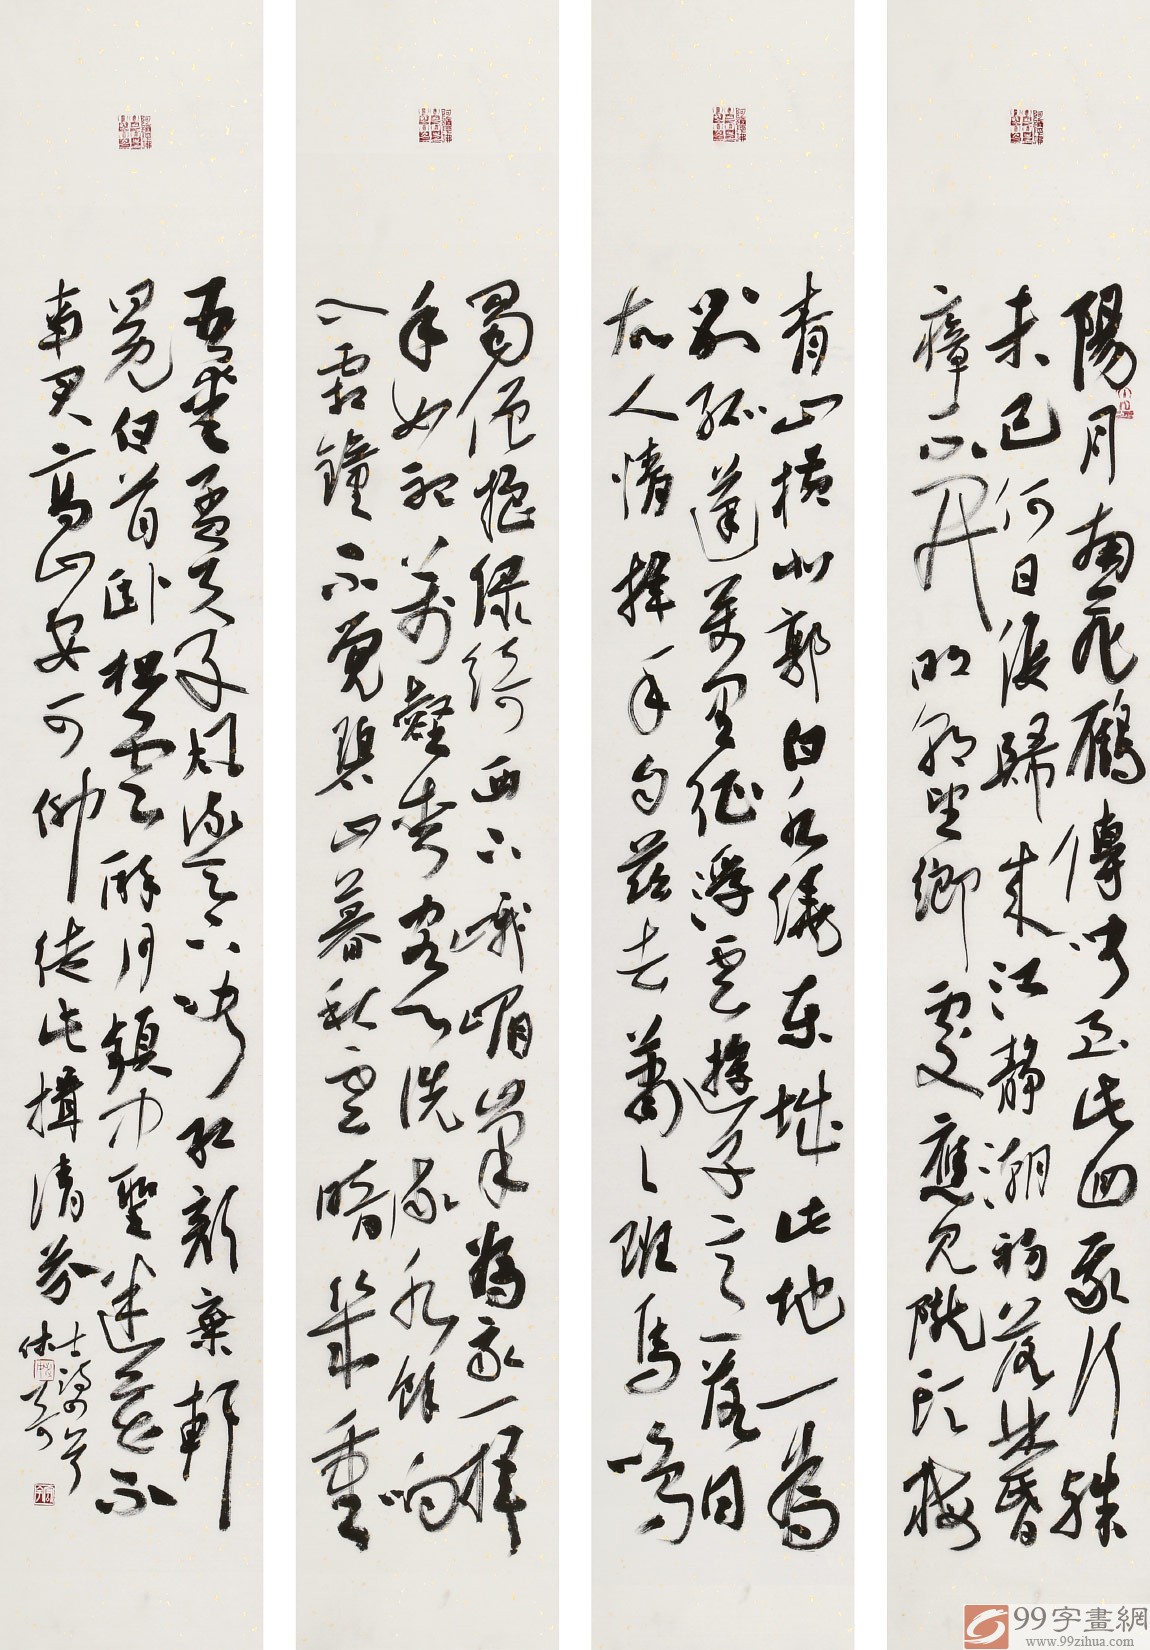 陽月南飛雁傳聞至此回我行殊
未已何日復歸來江靜潮初落林昏
瘴不開明朝望鄉處應見隴頭梅
青山橫北郭白水繞東城此地一為
別孤蓬萬里征浮雲遊子意落日
故人情揮手自茲去蕭々班馬鳴
蜀僧抱綠綺西下峨嵋峰為我一揮
手如聽萬壑松客心洗流水餘響
入霜鐘不覺碧山暮秋雲暗幾重
吾愛孟夫子風流天下聞紅顏棄軒
冕白首臥松雲醉月頻中聖迷花不
事君高山安可仰徒此揖清芬
99字畫網
www.99zihua.com